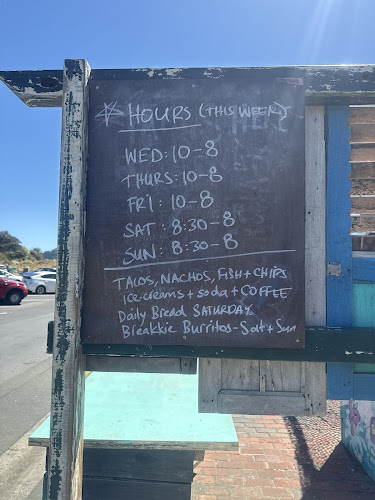 HOURS (THIS WEEK)
WED: 10-8
THURS: 10-8
FRI: 10-8
SAT: 8:30-8
SUN: 8:30-8
TACOS, NACHOS, FISH + CHIPS
ice-creams + soda + COFFEE
Daily Bread SATURDAY
Breakkie Burritos - Sat + Sun